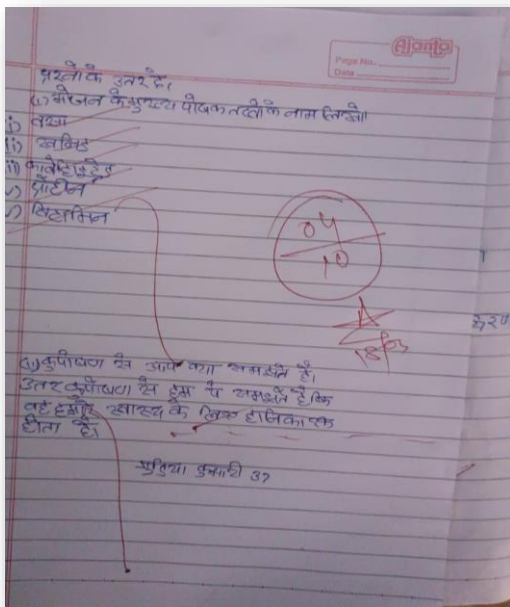 Ajanta
Page No.
Date
प्रश्नो के उतर दे।
(i) भोजन के मुख्य पोषक तत्वो के नाम लिखो
i) वसा
ii) खनिज
iii) कार्बोहाइड्रेट
v) प्रोटीन
v) विटामिन
04
10
18/03
(ii) कुपोषण से आप क्या समझते है।
उतर कुपोषण से हम ये समझते है कि
वह हमारे स्वास्थ के लिए हानिकारक
होता है।
कुमारी 37